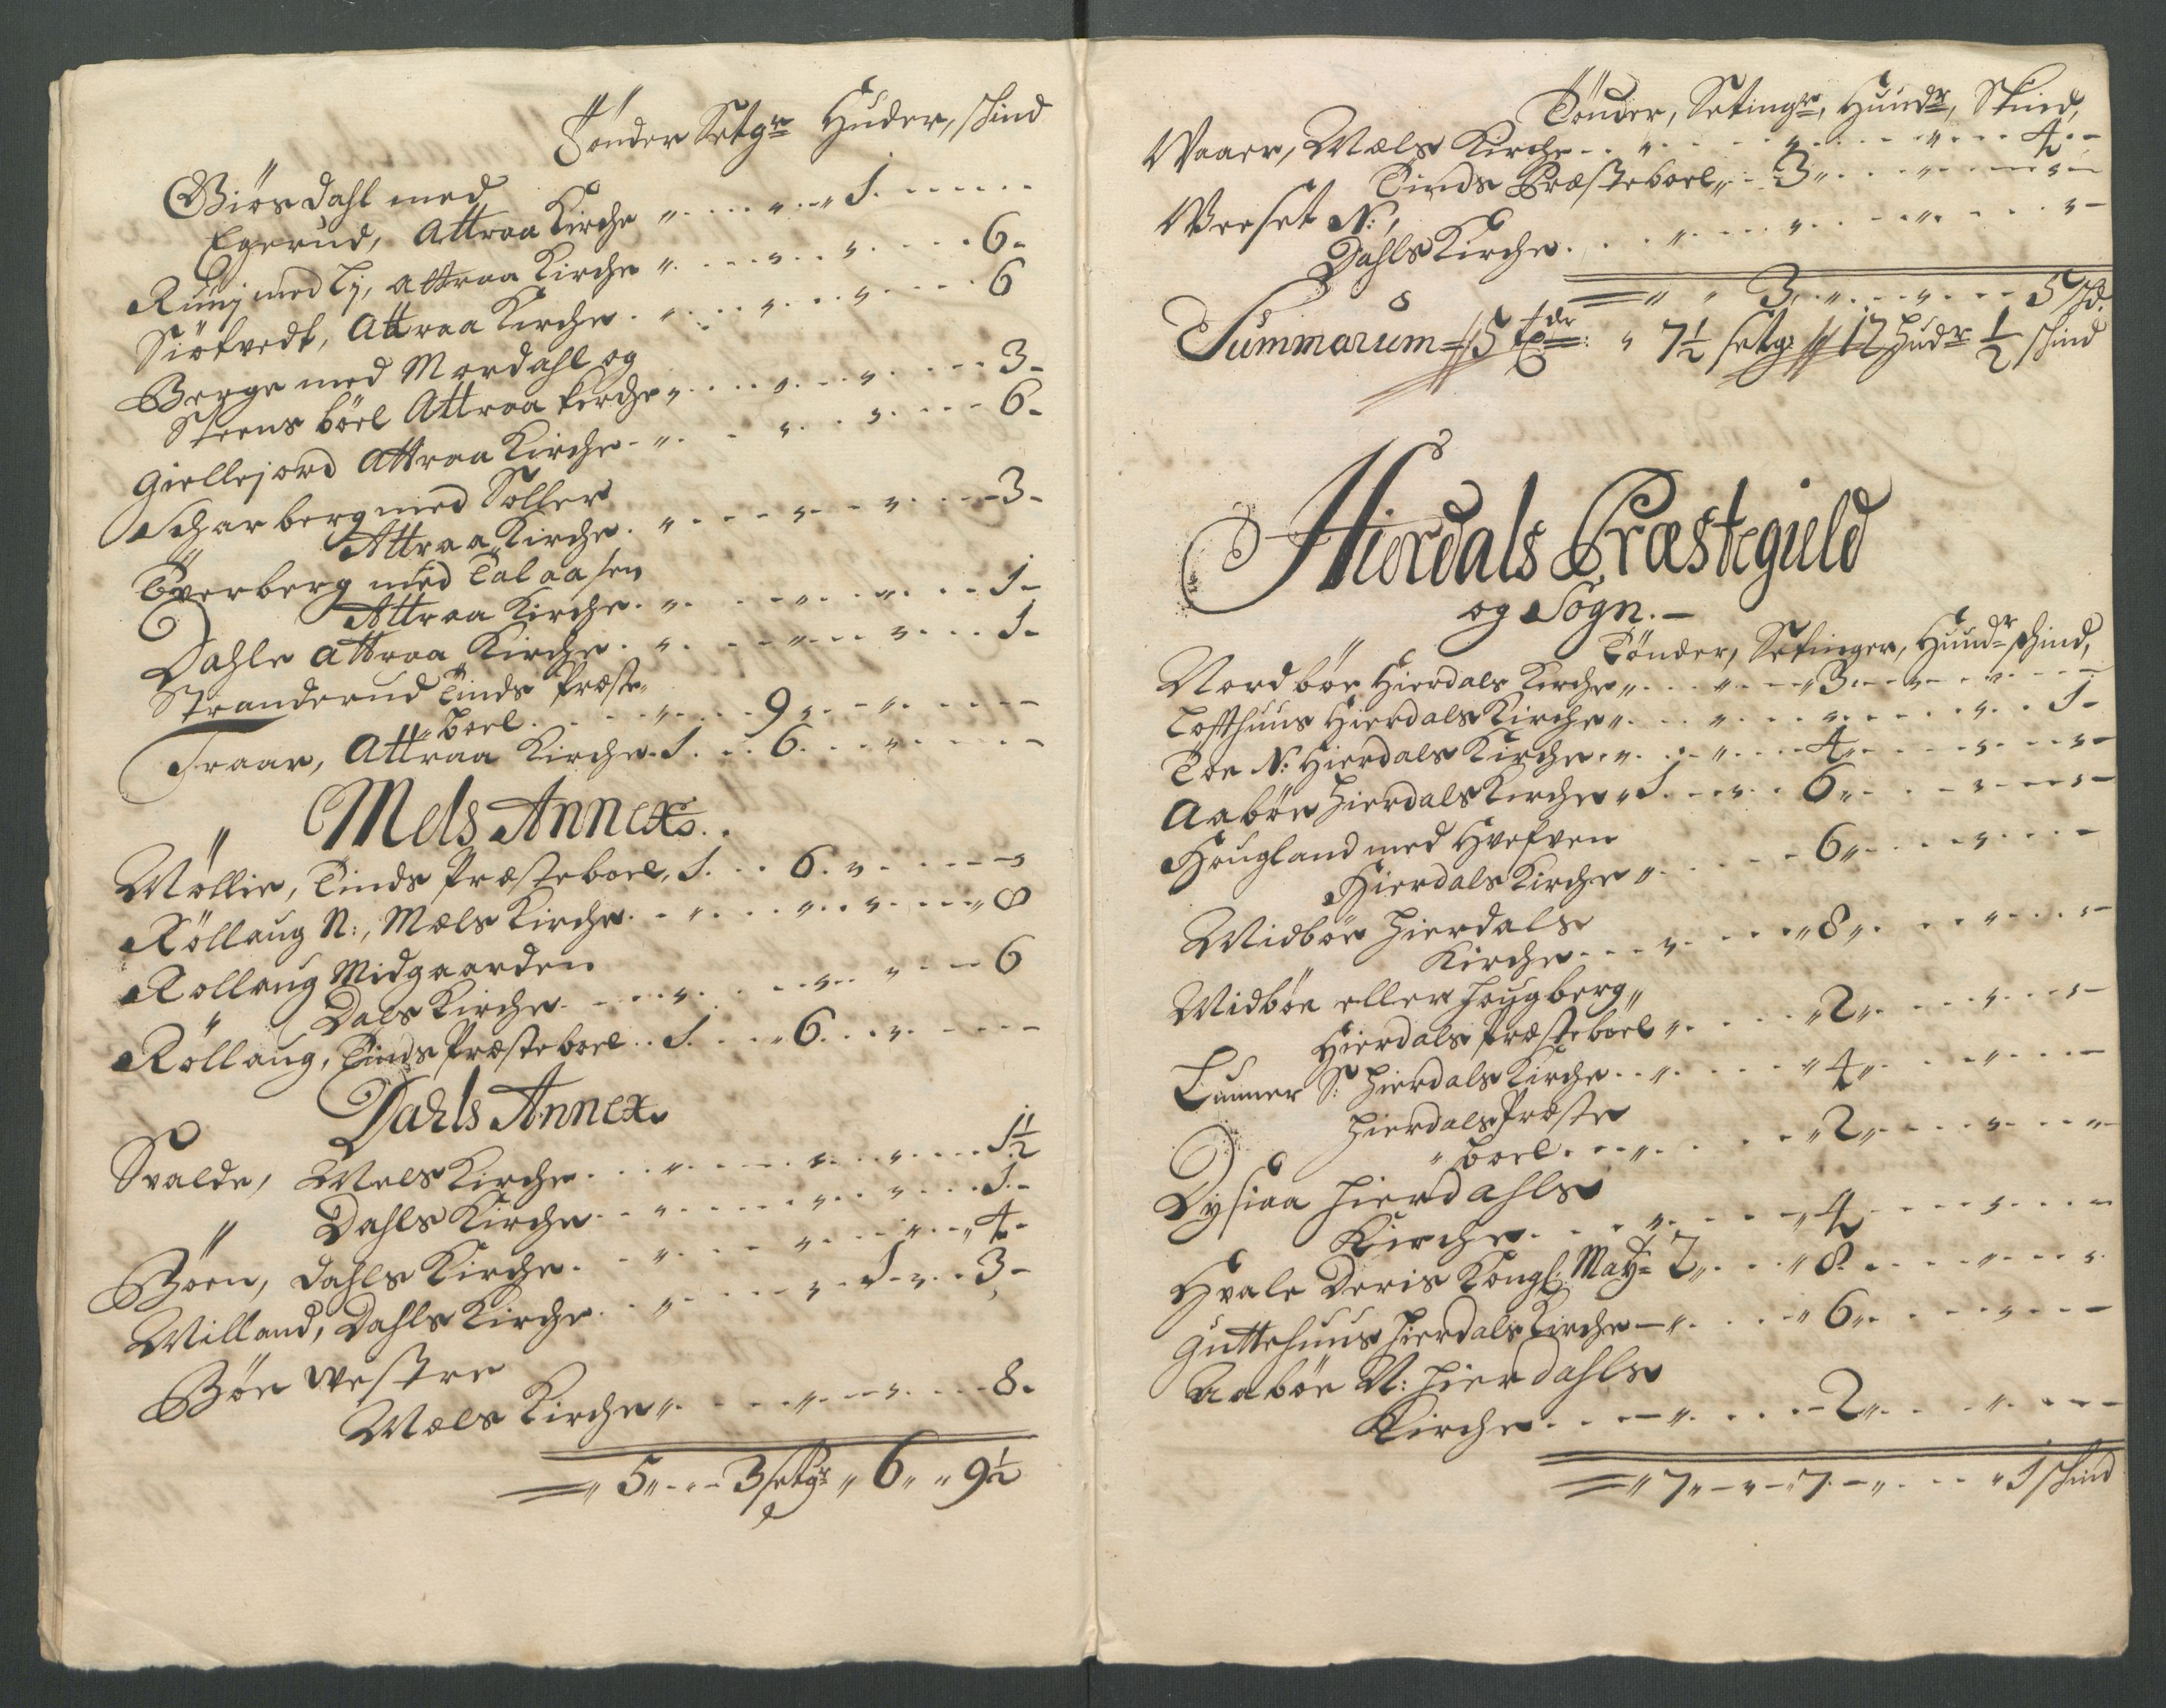 Tönder Setgr Huder, skind
Giörsdahl med
Egerud, Attraa Kirche „ „ „ 1.
Ruuj med Ej, Attraa Kirche „ „ „ 6-
Siötvedt, Attraa Kirche „ „ „ 6
Berge med Mordahl og
Steens böel Attraa kirche „ „ „ 3-
Giellejord Attraa Kirche „ „ „ 6-
Scharberg med Soller
Attraa Kirche. „ „ „ 3-
Tverberg med Talaasen
Attraa Kirche. „ „ „ 1-
Dahle Attraa Kirche. „ „ „ 1-
Stranderud Tinds Præste-
„boel. „ 9 „ „
Traar, Attraa Kirche. 1. 6. „
Mels Annex.
Möllie, Tinds Præsteboel, 1. 6. „
Röllaug N:, Mæls Kirche. „ „ „ 8
Rollaug Midgaarden
Dals Kirche. „ „ „ 6
Röllaug, Tinds Præsteboel. 1. 6. „
Dahls Annex.
Svalde, Mels Kirche. „ „ „ 1½
Dahls Kirche. „ „ „ 1.-
Böen, Dahls Kirche. „ „ „ 4-
Milland, Dahls Kirche. „ „ 1 „ 3-
Böe westre
Mæls Kirche „ „ „ 8.
„ 5 „ 3 setgr „ 6 „ „ 9½
Tönder, Setingr, Hundr, Skind,
Waaer, Mæls Kirche. „ „ „ 4.-
Tinds Præsteboel „ 3 „ „ „
Weeset N:,
Dahls Kirche. „ „ „ „
„ „ 3 „ „ 5 skd.
Summarum 15 tdr „ 7½ setgr 17 Hudr ½ skind
Hierdals Præstegield
og Sogn.-
Tönder, Setinger, Hundr skind,
Nordböe Hierdals Kirche „ „ 3 „ „
Loffthuus Hierdals Kirche „ „ „ „ 1-
Toe N: Hierdals Kirche. „ „ 4 „ „
Aaböe Hierdals Kirche „ 1. „ 6 „ „
Hougland med Hvefven
Hierdals Kirche „ 6 „ „
Midböe Hierdals
Kirche. „ „ 8 „ „
Midböe eller Hougberg „
Hierdals Præsteboel „ „ 2 „ „
Lunner S: Hierdals Kirche. „ „ 4 „ „
Hierdals Præste
„boel. „ „ 2 „ „
Dysiaa Hierdahls
Kirche. „ „ 4 „
Hvale Deris Kongl: Mayt 2 „ „ 8. „ „
Guttehuus Hierdals Kirche „ „ 6 „ „
Aaböe N: Hierdahls
Kirche. „ 2 „ „
„ 7 „ „ 7. „ „ 1 skind